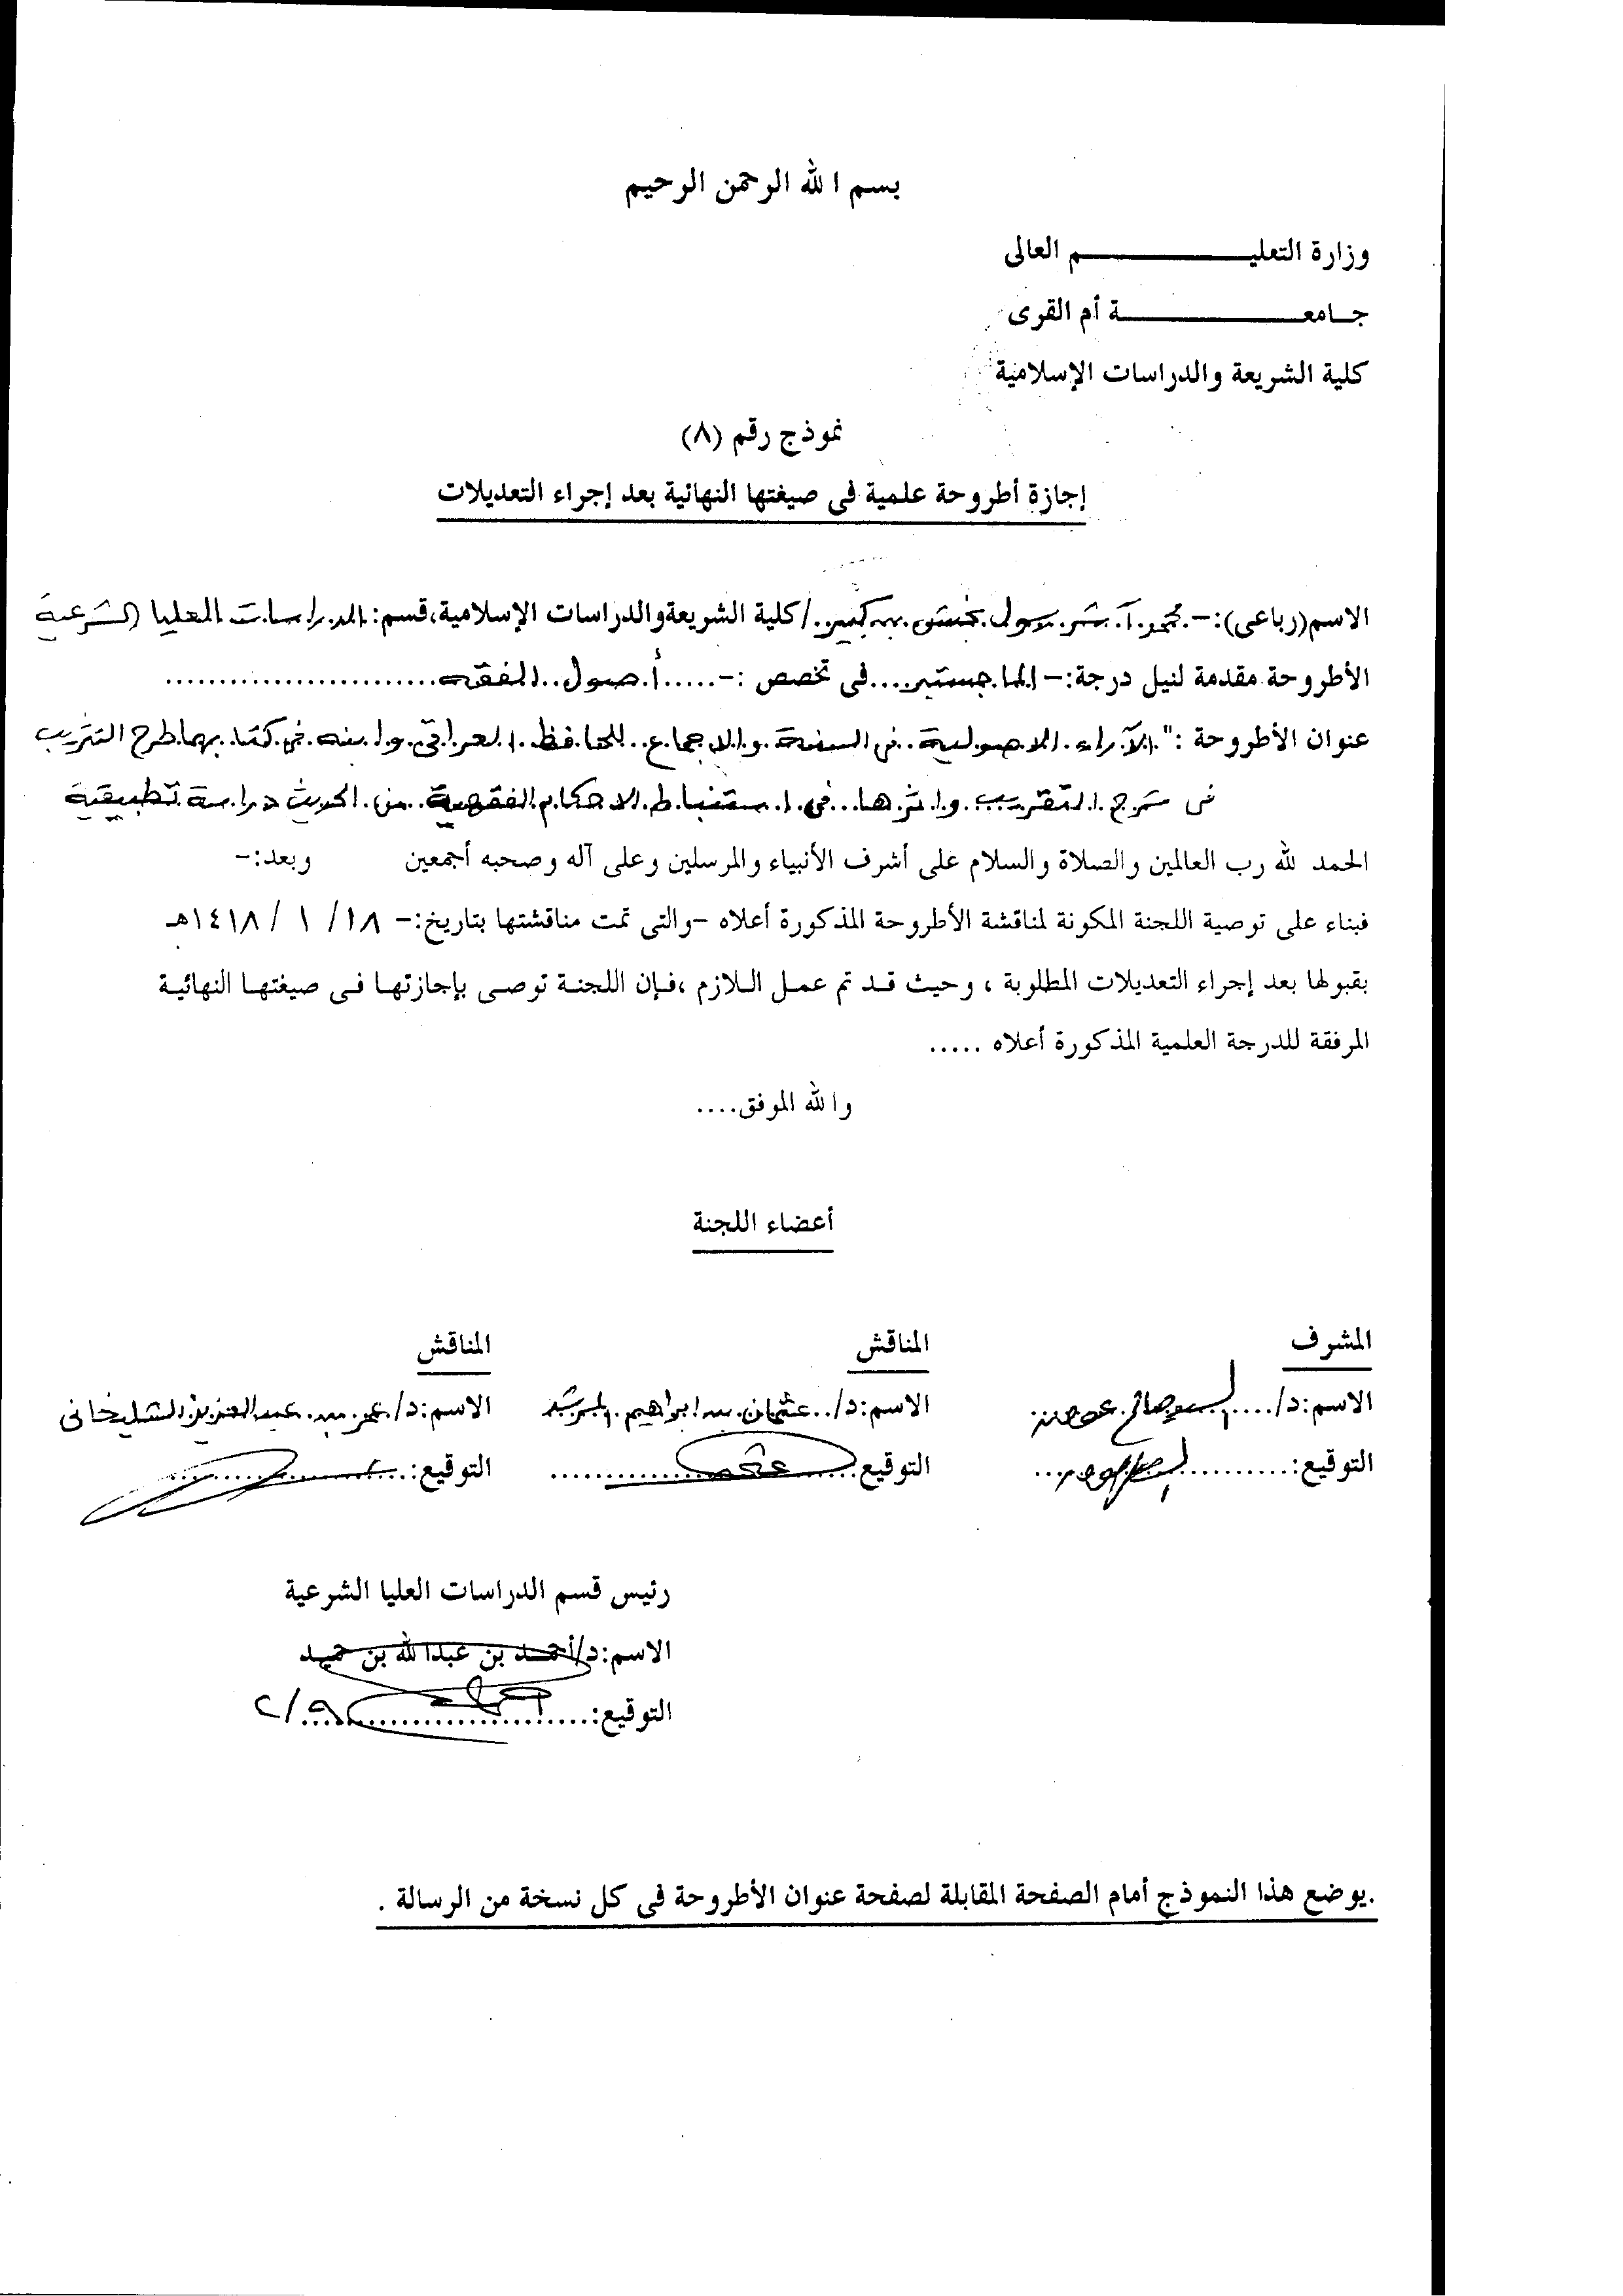 بسم الله الرحمن الرحيم
وزارة التعليم العالى
جامعة أم القرى
كلية الشريعة والدراسات الإسلامية
نموذج رقم (٨)
إجازة أطروحة علمية فى صيغتها النهائية بعد إجراء التعديلات
الاسم(رباعى):- محمد رسول بخش بن كبير / كلية الشريعة والدراسات الإسلامية، قسم: الدراسات العليا الشرعية
الأطروحة مقدمة لنيل درجة:- الماجستير.... فى تخصص :-.....أصول الفقه
عنوان الأطروحة :" الآراء الاصولية فى السنة والاجماع للحافظ العراقى وابنه فى كتابهما طرح التثريب
فى شرح التقريب واثرها فى استنباط الاحكام الفقهية من الحديث دراسة تطبيقية
الحمد لله رب العالمين والصلاة والسلام على أشرف الأنبياء والمرسلين وعلى آله وصحبه أجمعين وبعد:-
فبناء على توصية اللجنة المكونة لمناقشة الأطروحة المذكورة أعلاه -والتى تمت مناقشتها بتاريخ:- ١٨/ ١ /١٤١٨هـ
بقبولها بعد إجراء التعديلات المطلوبة ، وحيث قد تم عمل اللازم ،فإن اللجنة توصى بإجازتها فى صيغتها النهائية
المرفقة للدرجة العلمية المذكورة أعلاه .....
والله الموفق....
أعضاء اللجنة
المشرف المناقش المناقش
الاسم:د/ الاسم:د/ عثمان بن ابراهيم المرشد الاسم:د/ عمر بن عبدالعزيز الشليخانى
التوقيع: التوقيع التوقيع:
رئيس قسم الدراسات العليا الشرعية
الاسم:د/أحمد بن عبدالله بن حميد
التوقيع: ٢/٩
.يوضع هذا النموذج أمام الصفحة المقابلة لصفحة عنوان الأطروحة فى كل نسخة من الرسالة .